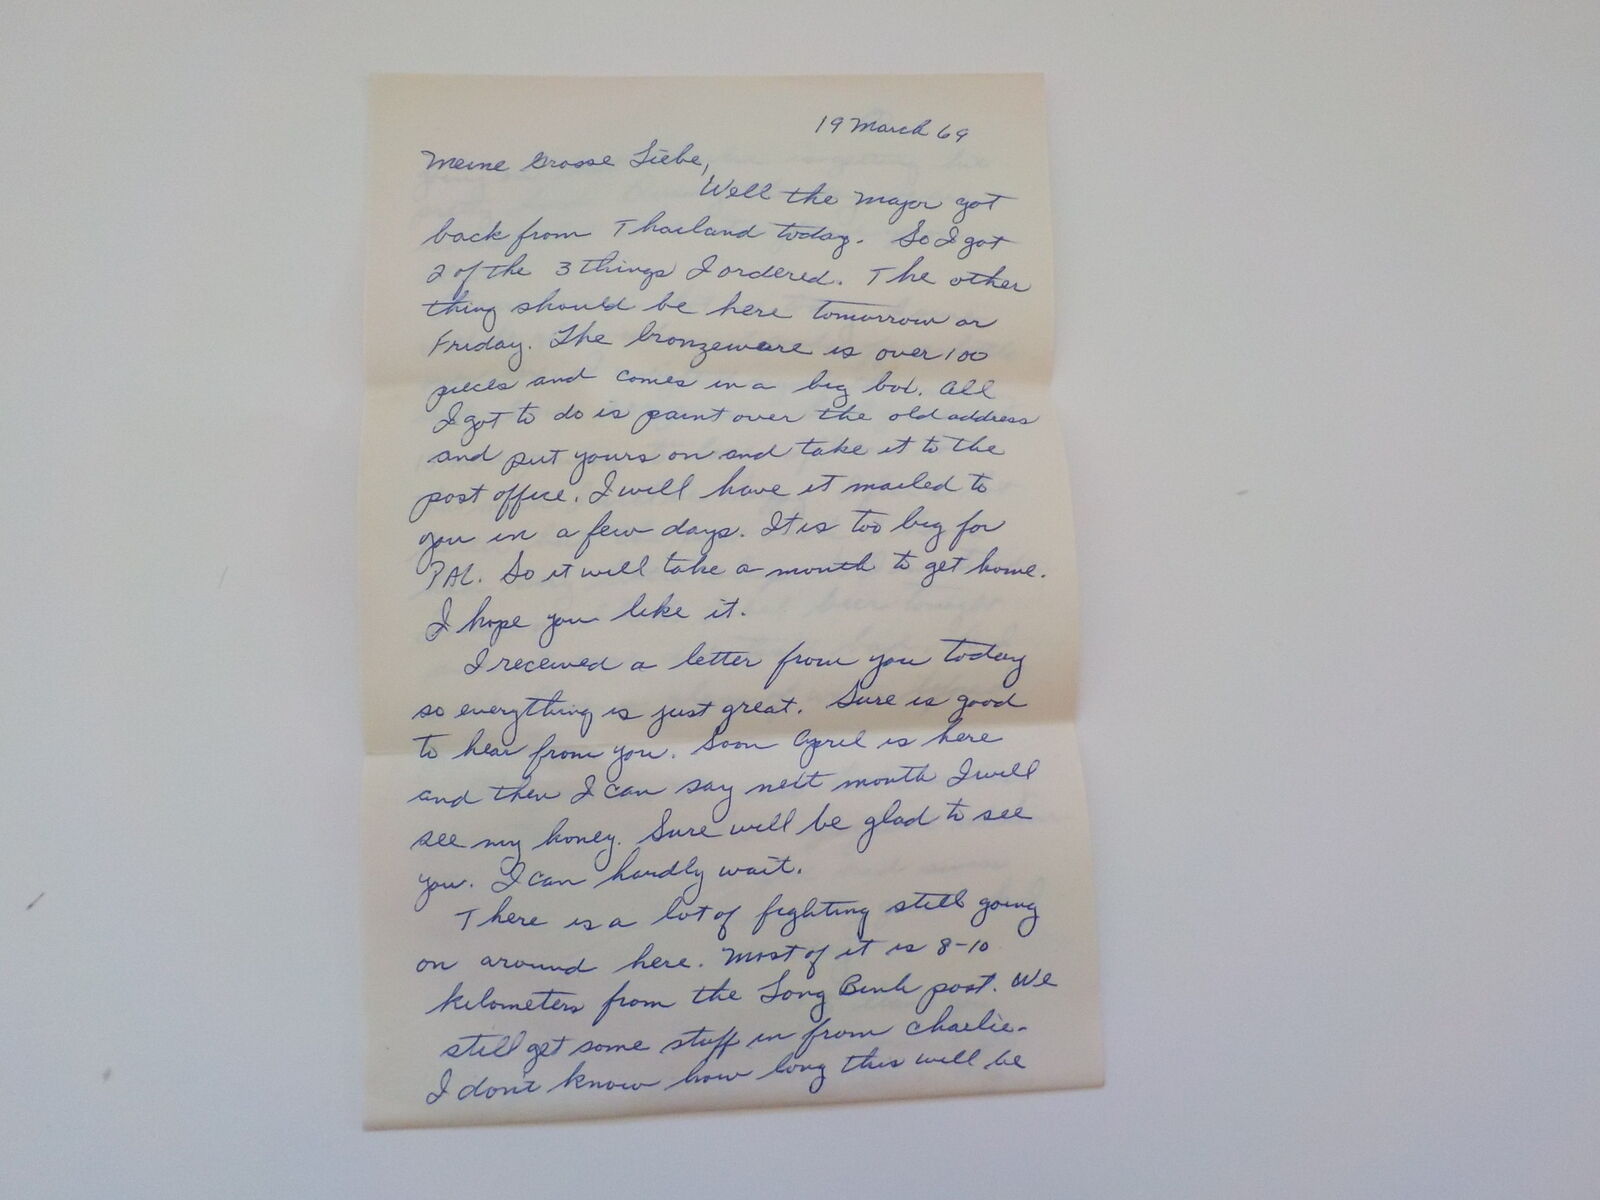 19 March 69
Meine Grosse Liebe,
Well the Major got
back from Thailand today. So I got
2 of the 3 things I ordered. The other
thing should be here tomorrow or
Friday. The bronzeware is over 100
pieces and comes in a big box. All
I got to do is paint over the old address
and put yours on and take it to the
post office. I will have it mailed to
you in a few days. It is too big for
PAL. So it will take a month to get home.
I hope you like it.
I received a letter from you today
so everything is just great. Sure is good
to hear from you. Soon April is here
and then I can say next month I will
see my honey. Sure will be glad to see
you. I can hardly wait.
There is a lot of fighting still going
on around here. Most of it is 8-10
kilometers from the Long Binh post. We
still get some stuff in from Charlie.
I don't know how long this will be